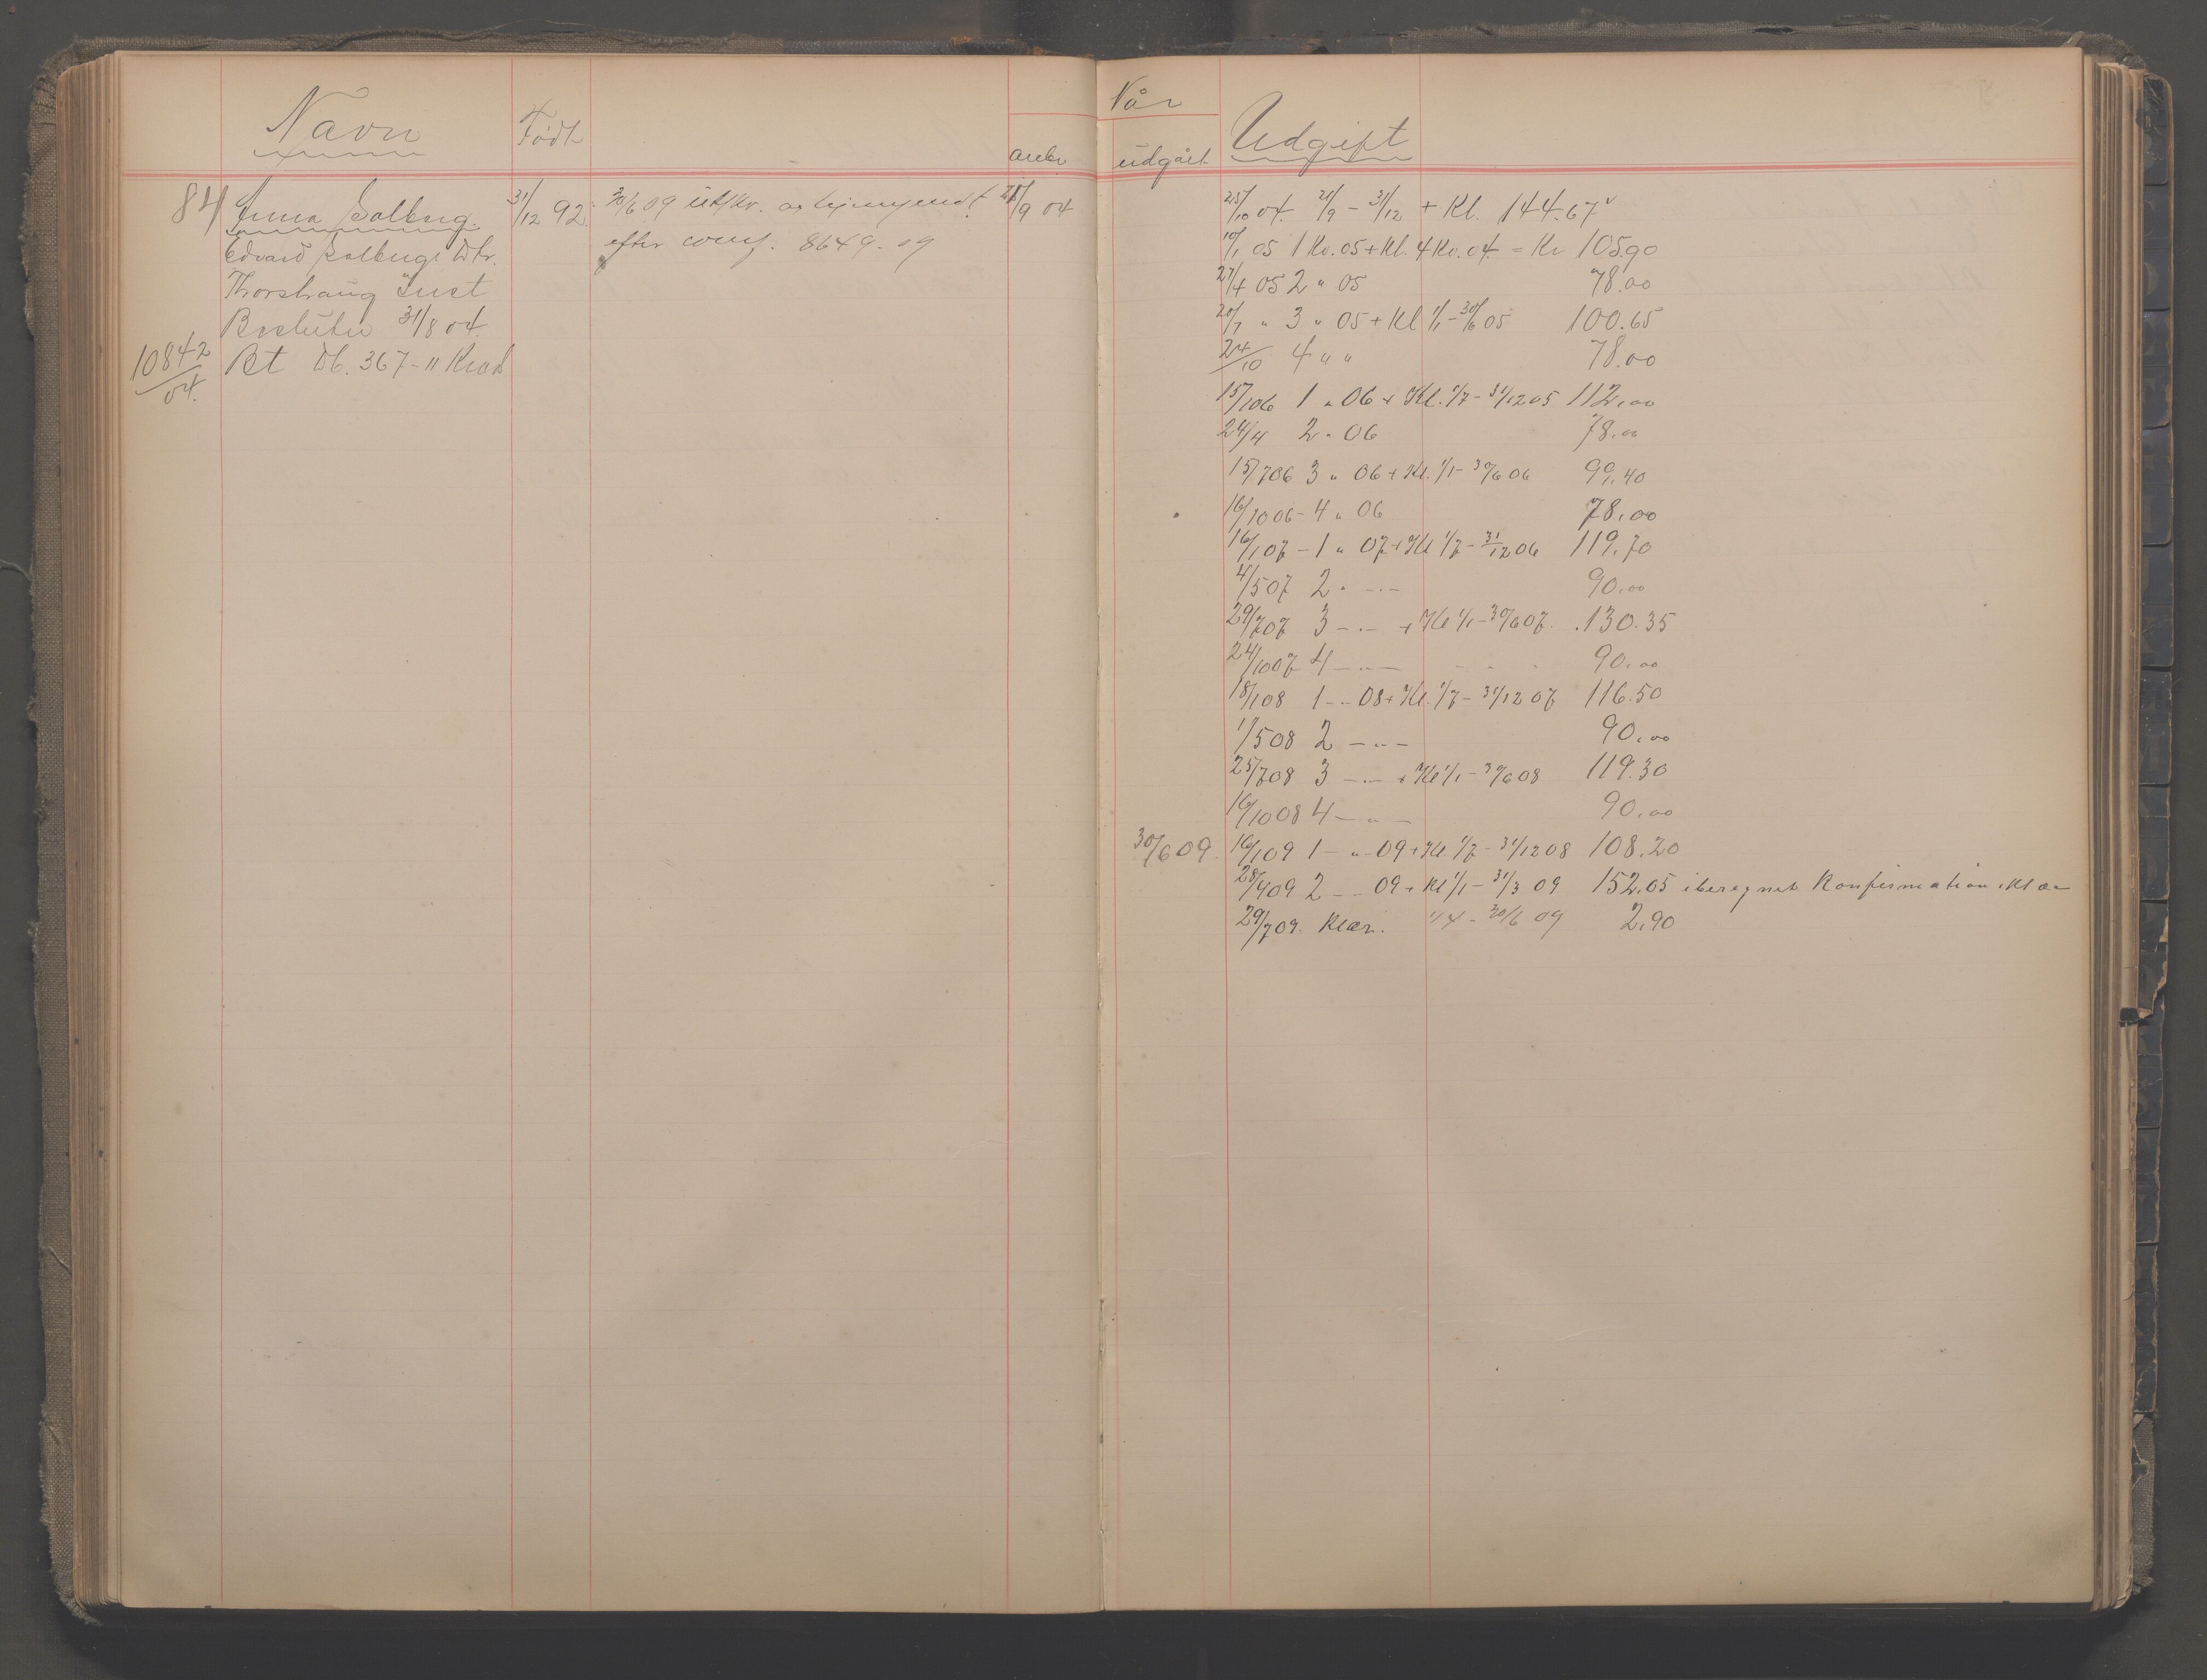 Navn
Født
Når
anbr
udgået
Udgift
84
Anna Solberg.
31/12 92.
30/6 09 utskr.
21/9 04
efter conf. 8649-09
Edvard Solbergs Dtr.
Thorshaug Inst
Besluttn 31/8 04.
10842/04.
Bt Db. 367-"
25/10 04. 21/9 - 31/12 + Kl. 144.67
10/1 05 1 Kv. 05 + Kl. 4 Kv. 04. = Kr 105.90
27/4 05 2 " 05 78.00
20/7 " 3 " 05 + Kl 1/1 - 30/6 05 100.65
24/10 4 " " 78.00
15/1 06 1 " 06 + Kl. 1/7 - 31/12 05 112,00
24/4 2 " 06 78.00
15/7 06 3 " 06 + Kl. 1/1 - 30/6 06 99,40
16/10 06 - 4 " 06 78,00
16/1 07 - 1 " 07 + Kl 1/7 - 31/12 06 119,70
4/5 07 2 " - " - 90.00
29/7 07 3 - " - + Kl 1/1 - 30/6 07. 130.35
24/10 07 4 - " - 90.00
18/1 08 1 - " 08 + Kl. 1/7 - 31/12 07 116.50
1/5 08 2 - " - 90.00
25/7 08 3 - " - + Kl 1/1 - 30/6 08 119.30
16/10 08 4 - " - 90.00
30/6 09. 16/1 09 1 - " - 09 + Kl. 1/7 - 31/12 08 108.20
28/4 09 2 - - 09 + Kl 1/1 - 31/3 09 152.05 iberegnet Konfirmation Klær
29/7 09. Klær. 1/4 - 30/6 09 2,90